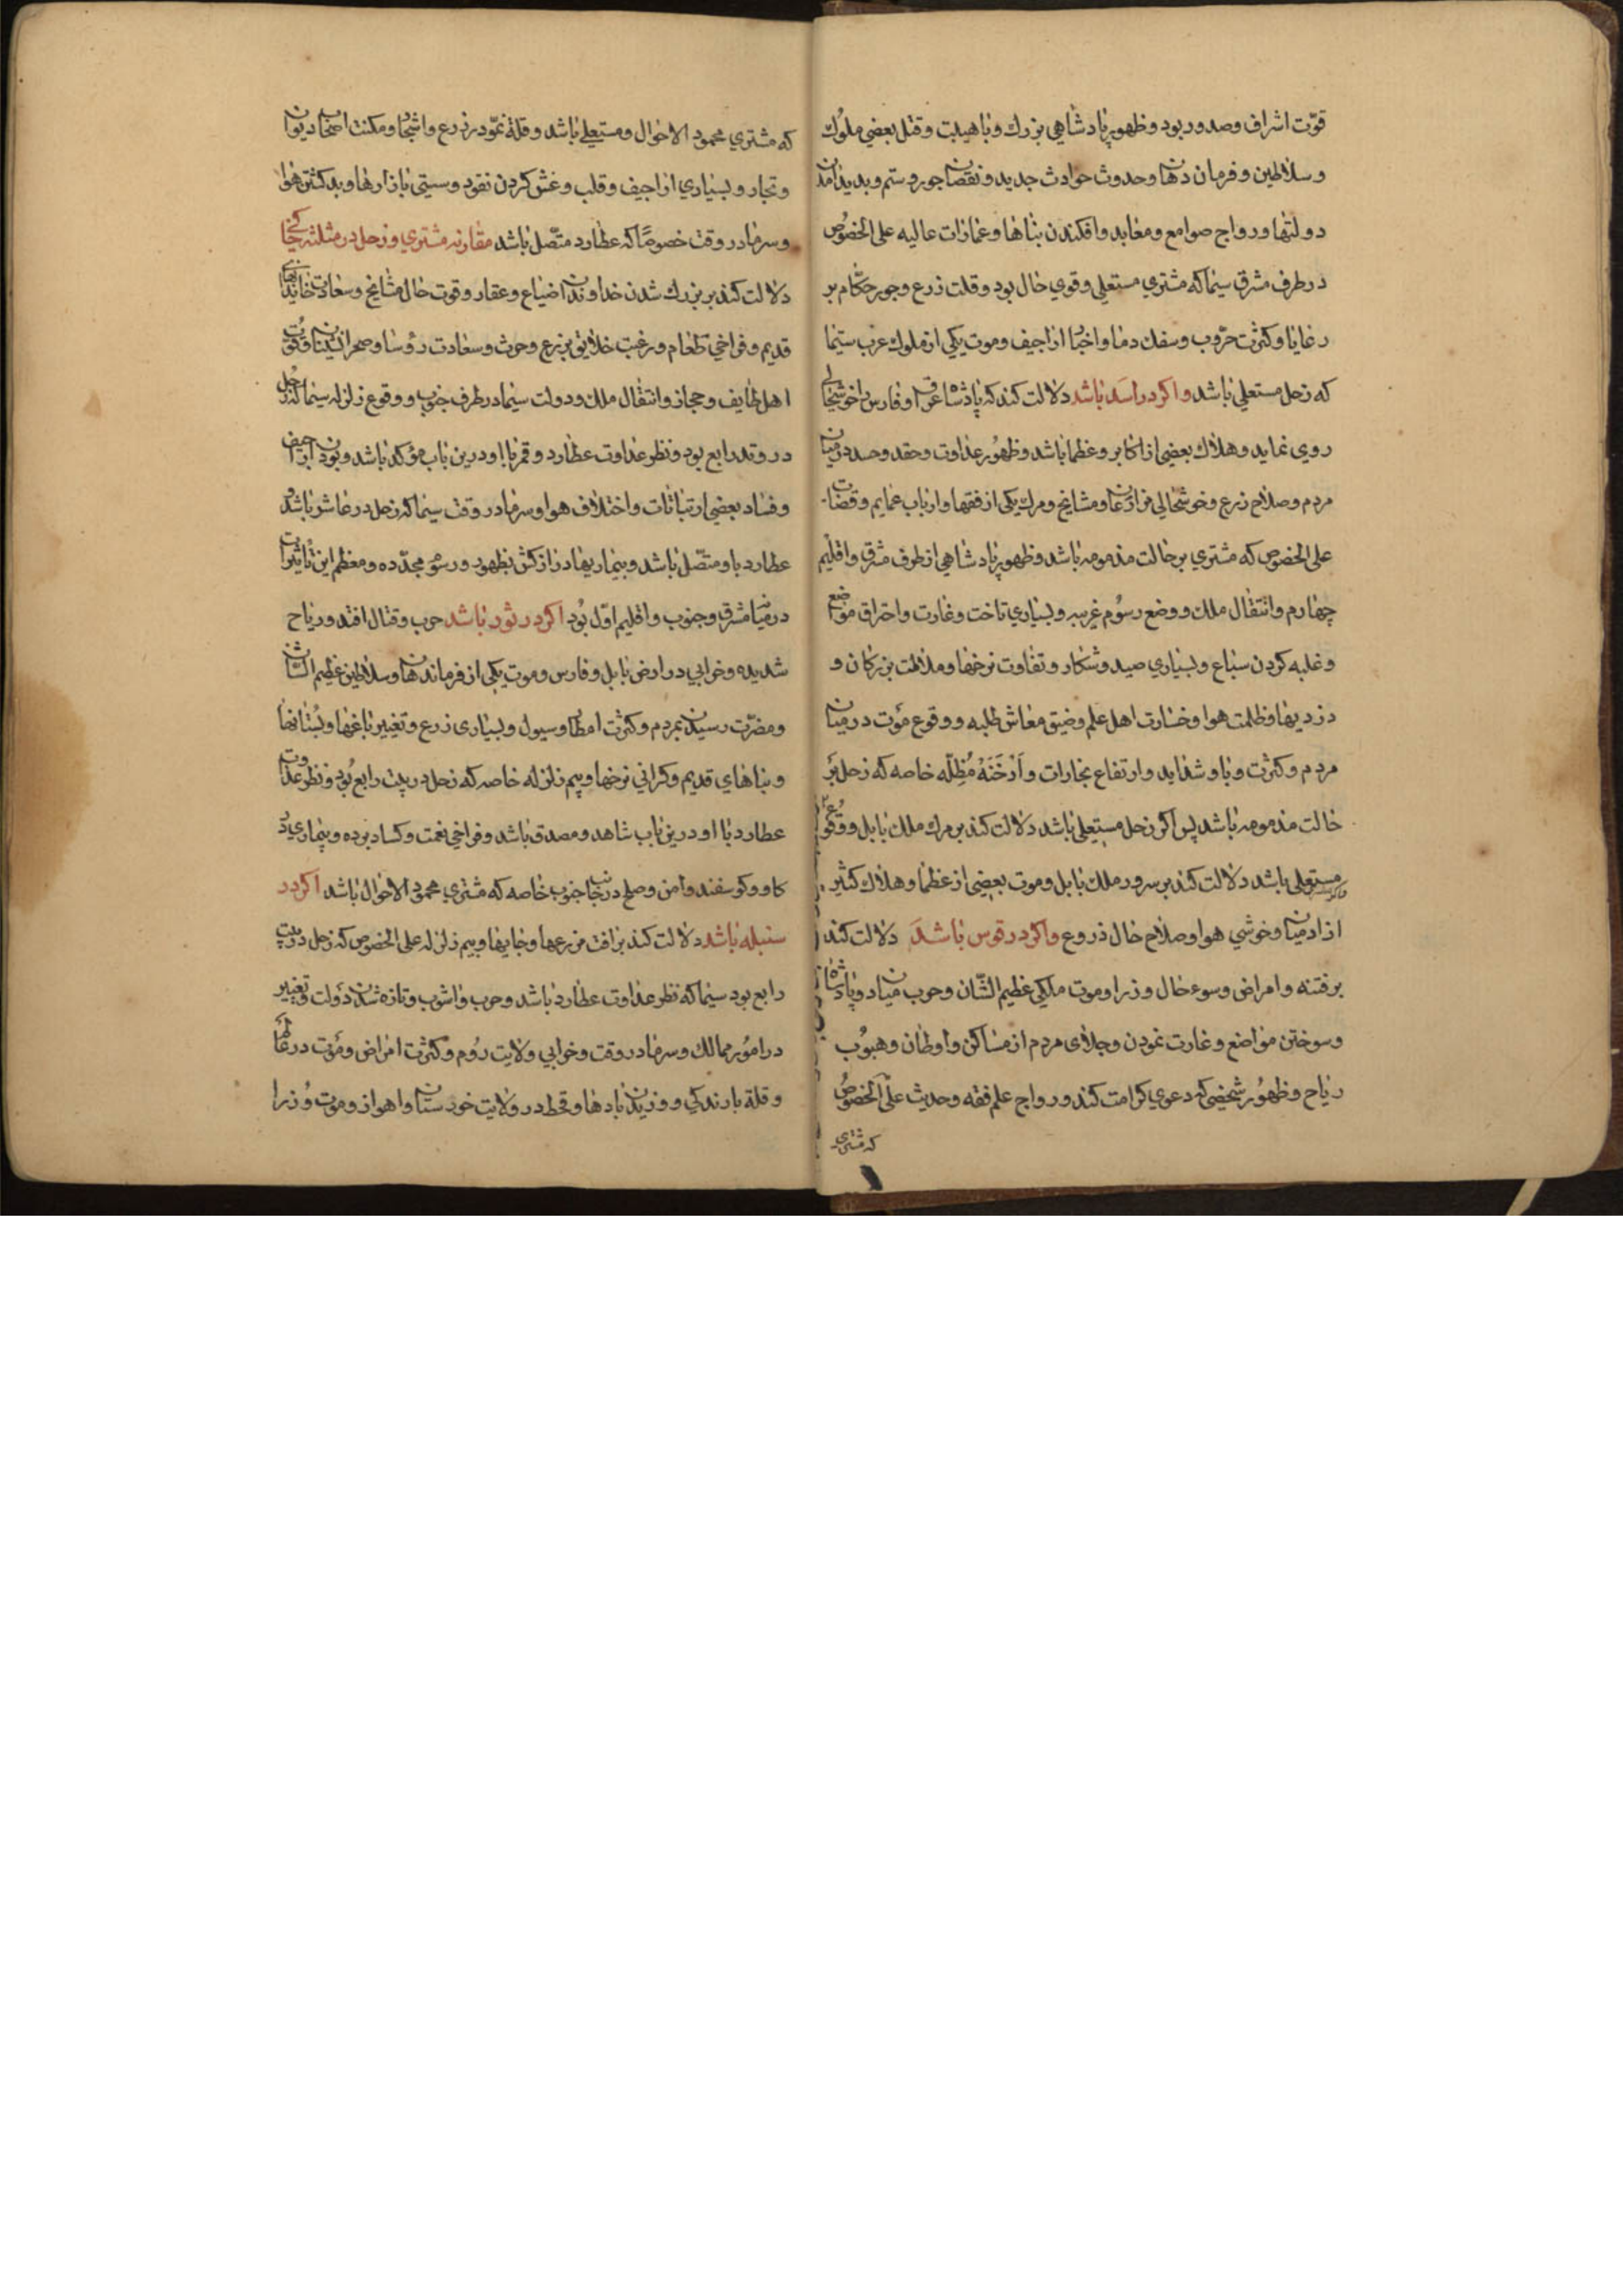 قوّت اشراف وصدور بود وظهور پادشاهی بزرك وباهیبت وقتل بعضی ملوك
وسلاطین وفرمان دهان وحدوث حوادث جدید ونقصان جور وستم وبدید امدن
دولتها ورواج صوامع ومعابد وافکندن بناها وعمارات عالیه علی الخصوص
در طرف مشرق سیما که مشتری مستعلی وقوی حال بود وقلت زرع وجور حکّام بر
رعایا وکثرت حروب وسفك دما واخبار اراجیف وموت یکی از ملوك عرب سیّما
که زحل مستعلی باشد واکر در اسد باشد دلالت کند که پادشاه عراق وفارس را خوشحالی
روی نماید وهلاك بعضی از اکابر وعظما باشد وظهور عداوت وحقد وحسد در میان
مردم وصلاح زرع وخوشحالی مزارعان ومشایخ ومرك یکی از فقها وارباب عمایم وقضات
علی الخصوص که مشتری بر حالت مذمومه باشد وظهور پادشاهی از طرف مشرق واقلیم
چهارم وانتقال ملك ووضع رسوم غریبه وبسیاری تاخت وغارت واحتراق مواضع
وغلبه کردن سباع وبسیاری صید وشکار وتفاوت نرخها وملالت بزرکان و
دزدیها وظلمت هوا وخسارت اهل علم وضیق معاش طلبه ووقوع موت در میان
مردم وکثرت وبا وشداید وارتفاع بخارات وادخنه مظلّه خاصه که زحل بر
حالت مذمومه باشد پس اکر زحل مستعلی باشد دلالت کند بر مرك ملك بابل ووقوع
مستعلی باشد دلالت کند بر سرور ملك بابل وموت بعضی از عظما وهلاك کثیر
از ادمیان وخوشی هوا وصلاح حال زروع واکر در قوس باشد دلالت کند
بر فتنه وامراض وسوء حال وزرا وموت ملکی عظیم الشّان وحرب میان دو پادشاه
وسوختن مواضع وغارت نمودن وجلای مردم از مساکن واوطان وهبوب
ریاح وظهور شخصی که دعوی کرامت کند ورواج علم فقه وحدیث علی الخصوص
که مشتری
که مشتری محمود الاحوال ومستعلی باشد وقلة نموّ در زرع واشجار ومکنت اصحاب دیوان
وتجار وبسیاری اراجیف وقلب وغش کردن نقود وسستی بازارها وبد کشتن هوا
وسرما در وقت خصوصًا که عطارد متّصل باشد مقارنه مشتری وزحل در مثلثه خاکی
دلالت کند بر بزرك شدن خداوندان ضیاع وعقار وقوت حال مشایخ وسعادت خاندانهای
قدیم وفراخی طعام ورغبت خلایق بزرع وحرث وسعادت رؤسا وصحرانشینان وقوّت
اهل طایف وحجاز وانتقال ملك ودولت سیما در طرف جنوب ووقوع زلزله سیما که زحل
در وتد رابع بود ونظر عداوت عطارد وقمر با او درین باب مؤکد باشد وبودن اراجیف
وفساد بعضی از نباتات واختلاف هوا وسرما در وقت سیما که زحل در عاشر باشد و
عطارد باو متّصل باشد وبیماریها دراز کش بظهور ورسوم مجدّده ومعظم این تاثیرات
در میان مشرق وجنوب واقلیم اوّل بود اکر در ثور باشد حرب وقتال افتد وریاح
شدیده وخرابی در ارض بابل وفارس وموت یکی از فرماندهان وسلاطین عظیم الشان
ومضرّت رسیدن بمردم وکثرت امطار وسیول وبسیاری زرع وتغییر باغها وبستانها
وبناهای قدیم وکرانی نرخها وبیم زلزله خاصه که زحل در بیت رابع بود ونظر عداوت
عطارد با او درین باب شاهد ومصدق باشد وفراخی نعمت وکساد برده وبیماری در
کاو وکوسفند وامن وصلح در جانب جنوب خاصه که مشتری محمود الاحوال باشد اکر در
سنبله باشد دلالت کند بر افت مزرعها وخانها وبیم زلزله علی الخصوص که زحل در بیت
رابع بود سیما که نظر عداوت عطارد باشد وحرب واشوب وتازه شدن دولت وتغییر
در امور ممالك وسرما در وقت وخرابی ولایت روم وکثرت امراض وموت در علما
وقلة بارندکی ووزیدن بادها وقحط در ولایت خورستان واهواز وموت وزرا